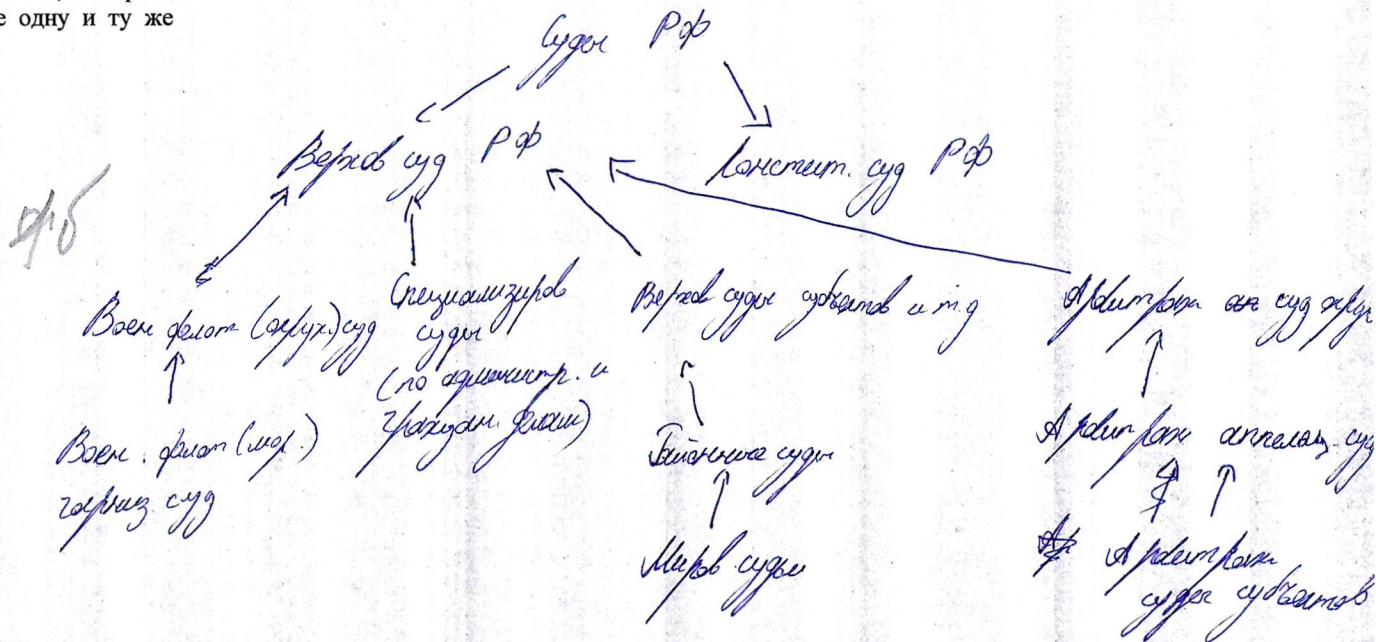 е одну и ту же
Суды РФ
Верхов суд РФ
Констит. суд РФ
Воен флот (окруж.) суд
Специализиров
суды
(по администр. и
граждан. делам)
Верхов суды субъектов и т.д
Арбитраж суд округ
Воен. флот (мор.)
гарниз суд
Районные суды
Арбитраж аппеляц. суд
Миров. судьи
Арбитраж
суды субъектов